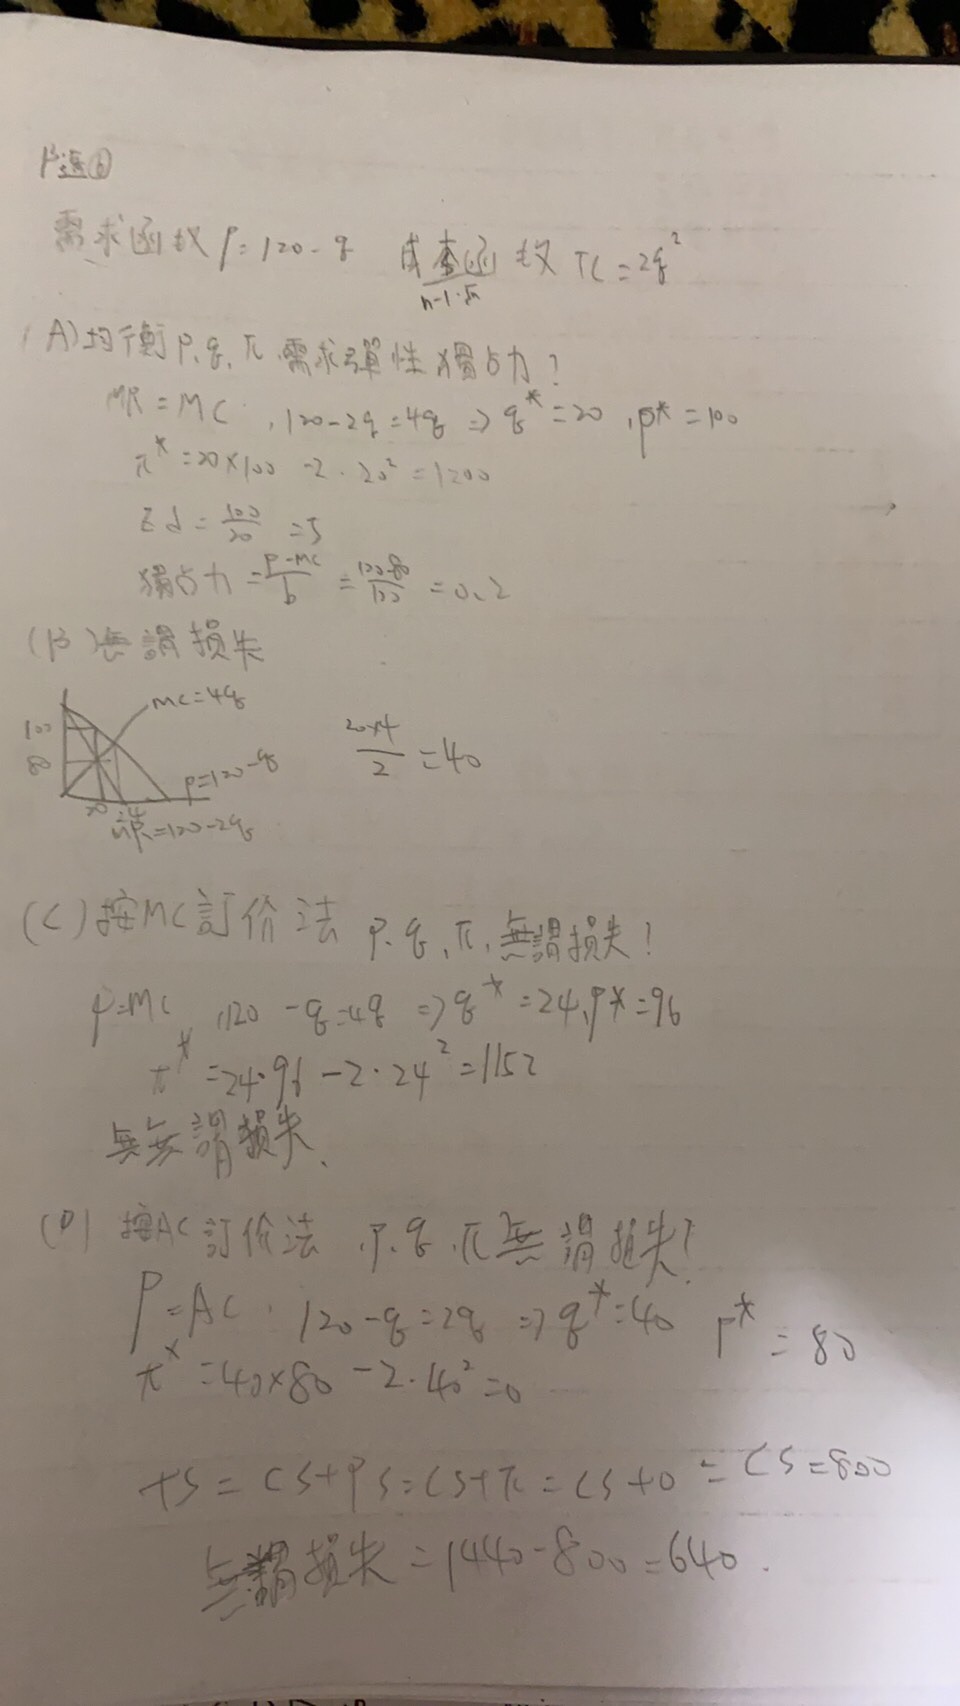 需求函数 P=120-q 成本函数 TC=2q²
(A)均衡P.q.π.需求彈性 獨占力?
MR=MC , 120-2q=4q => q*=20 , p*=100
π*=20×100 -2·20²=1200
εd=100/20=5
獨占力=P-MC/P=100-80/100=0.2
(B)無謂損失
MC=4q
100
80
20×4/2=40
P=120-q
20 24
MR=120-2q
(C)按MC訂价法 P.q.π.無謂損失?
P=MC , 120-q=4q => q*=24,P*=96
π*=24·96-2·24²=1152
無無謂損失.
(D) 按AC訂价法 .P.q.π無謂損失?
P=AC . 120-q=2q => q*=40 P*=80
π*=40×80-2·40²=0
TS=CS+PS=CS+π=CS+0=CS=800
無謂損失=1440-800=640.